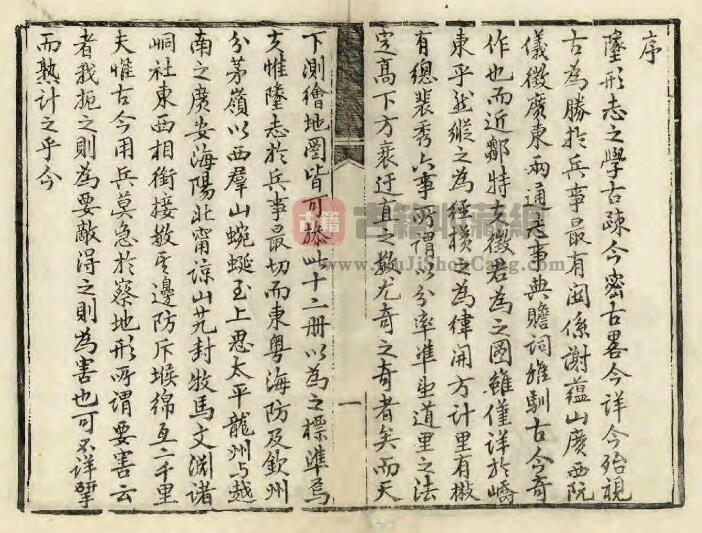 序
墬形志之學古疎今密古畧今詳今殆視
古為勝於兵事最有關係謝蘊山廣西阮
儀徵廣東兩通志事典贍詞雅馴古今奇
作也而近鄒特夫徵君為之圖雖僅詳於嶠
東乎然縱之為經橫之為緯開方計里有檢
有總裴秀六事所謂以分率準望道里之法
定高下方衺迂直之數尤奇之奇者矣而天
下測繪地圖皆可於此十二冊以為之標準焉
夫惟墬志於兵事最切而東粵海防及欽州
分茅嶺以西羣山蜿蜒至上思太平龍州与越
南之廣安海陽北甯諒山艽封牧馬文淵諸
峒社東西相銜接敬邊防斥堠綿亙二千里
夫惟古今用兵莫急於察地形所謂要害云
者我扼之則為要敵得之則為害也可不詳擘
而熟計之乎今
一
古籍收藏網
www.GuJiShouCang.com
古籍